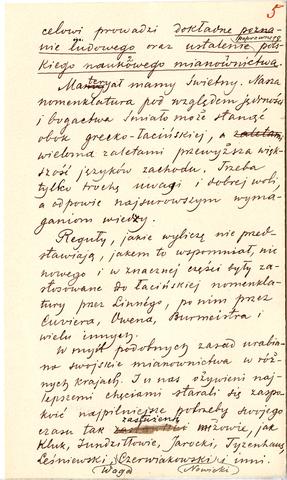 5
celowi prowadzi dokładne pozna-
nie ludowego oraz ustalenie pol-
skiego naukowego mianownictwa.
Materyał mamy świetny. Nasza
nomenklatura pod względem jędrności
i bogactwa śmiało może stanąć
obok grecko-łacińskiej, a zaletam
wieloma zaletami przewyższa więk-
szość języków zachodu. Trzeba
tylko trochę uwagi i dobrej woli,
a odpowie najsurowszym wyma-
ganiom wiedzy.
Reguły, jakie wyliczę nie przed-
stawiają, jakem to wspomniał, nic
nowego i w znacznej części były za-
stosowane do łacińskiej nomenkla-
tury przez Linnego, po nim przez
Cuviera, Owena, Burmeistra i
wielu innych.
W myśl podobnych zasad urabia-
no swojskie mianownictwa w róż-
nych krajach. I u nas ożywieni naj-
lepszemi chęciami starali się zaspo-
koić najpilniejsze potrzeby swojego
czasu tak zasłużeni mężowie, jak
Kluk, Jundziłłowie, Jarocki, Tyzenhauz,
Leśniewski, Czerwiakowski i inni.
Waga Nowicki